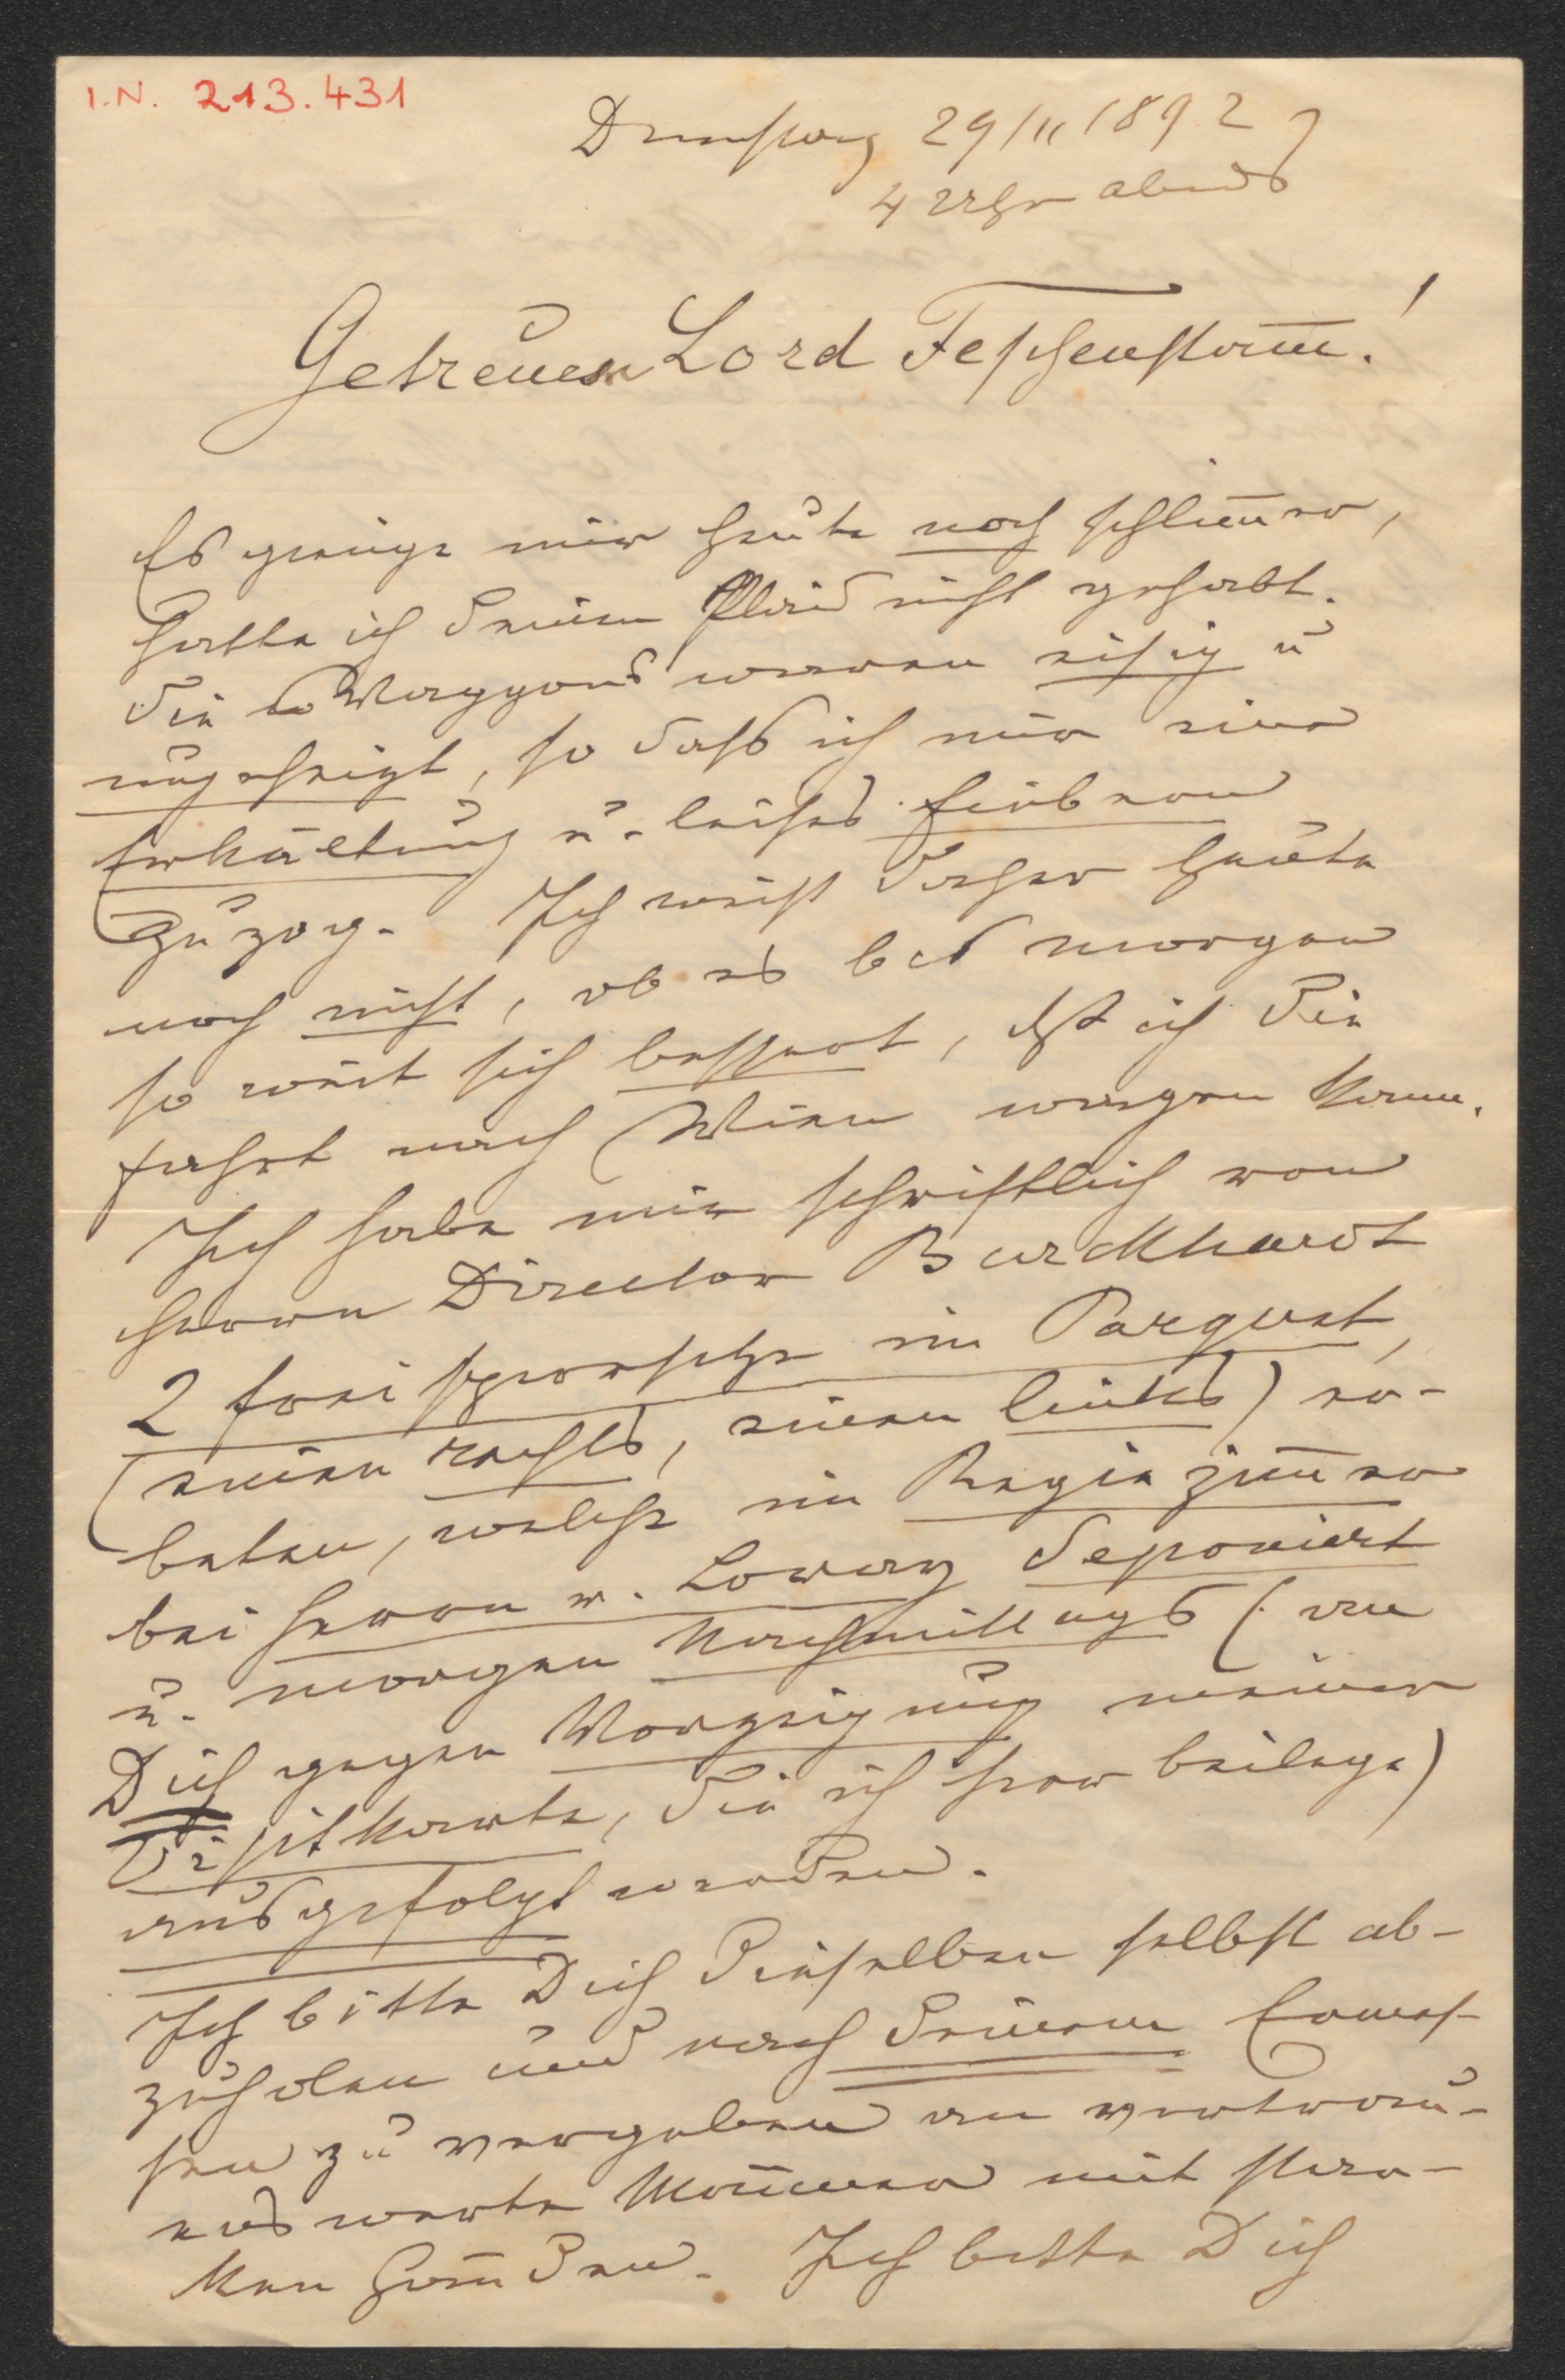 I.N. 213.431
Dienstag 29/11 1892
4 Uhr abends
Getreuer Lord
Es gienge mir heute noch schlim̅er,
hätte ich Deinen Plaid nicht gehabt.
Die Waggons waren eisig u
ungeheizt, so dass ich mir eine
Erkältung u. leises Fiebern
zuzog. Ich weiß daher heute
noch nicht, ob es bis morgen
so weit sich bessert, dß ich die
Fahrt nach Wien wagen kann.
Ich habe mir schriftlich von
Herrn Director Burckhardt
2 Freisperrsitze im Parquet,
(einen rechts, einen links) er-
beten, welche im Regiezim̅er
bei Herrn v. deponiert
u. morgen Nachmittags (an
Dich gegen Vorzeigung meiner
Visitkarte, die ich hier beilege)
ausgefolgt werden.
Ich bitte Dich dieselben selbst ab-
zuholen und nach Deinem Ermes-
sen zu vergeben an vertrau-
enswerte Männer mit star-
ken Händen. Ich bitte Dich